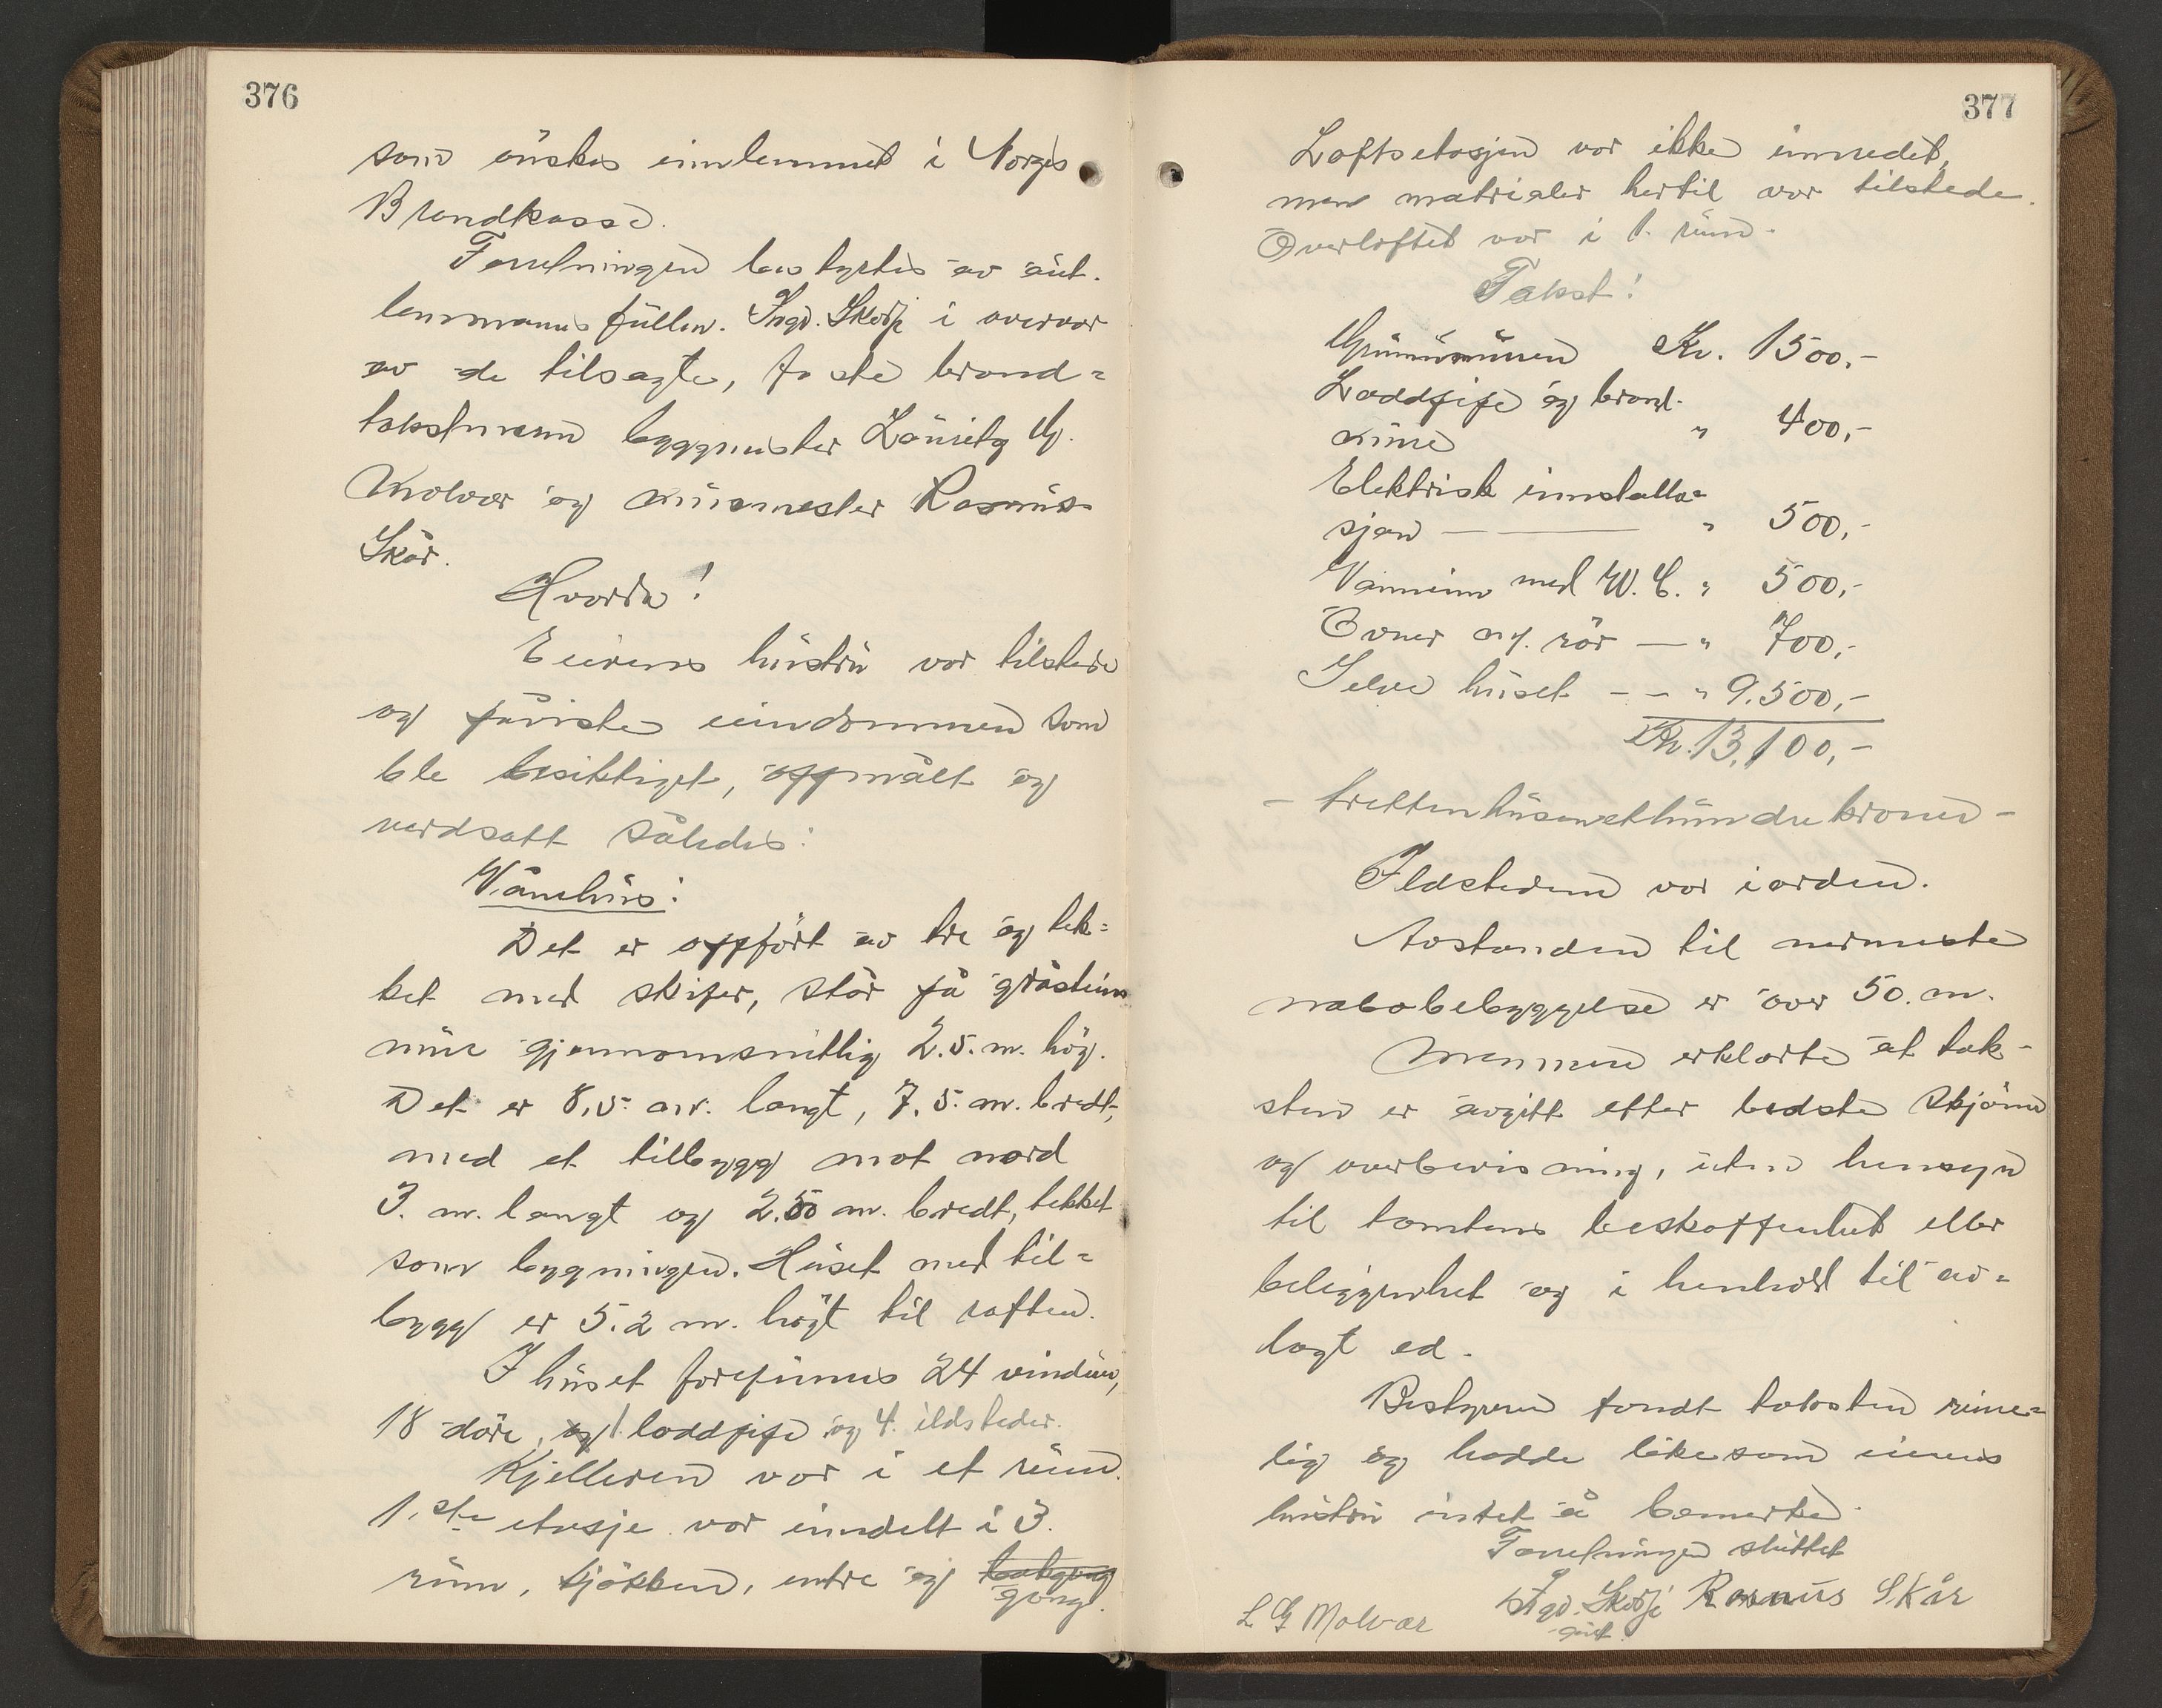 376
som ønskes innlemmet i Norges
Brandkasse.
Forretningen bestyrtes av aut.
lensmannsfullm. Ingv. Skorge i overvær
av de tilsagte, faste brand=
takstmenn byggmester Lauritz G.
Molvær og murmester Rasmus
Skår.
Hvorda!
Eierens hustru var tilstede
og påviste eiendommen som
ble besiktiget, oppmålt og
verdsatt således:
Vånehus:
Det er oppført av tre og tek=
ket med skifer, står på gråsteins
mur gjennomsnitlig 2.5. m. høg.
Det er 8,5. m. langt, 7,5. m. bredt,
med et tilbygg mot nord
3. m. langt og 2.50 m. bredt, tekket
som bygningen. Huset med til=
bygg er 5.2 m. høgt til raften.
I huset forefinnes 24 vinduer,
18 døre, og 1. loddpipe og 4. ildsteder.
Kjelleren var i et rum.
1.ste etasje var inndelt i 3.
rum, kjøkken, entre og bakgang
gang.
377
Loftsetasjen var ikke innredet,
men matrialer hertil var tilstede.
Overloftet var i 1. rum.
Takst!
Grunnmuren Kr. 1500,-
Loddpipe og brand-
mure " 400,-
Elektrisk innstalla=
sjon — " 500,-
Vanninn med W.C. " 500,-
Ovner m/. rør — " 700,-
Selve huset - - " 9.500,-
Kr. 13,100,-
- trettentusenetthundre kroner -
Ildstedene var i orden.
Avstanden til nermeste
nabobebyggelse er over 50. m.
Mennene erklærte at tak-
sten er avgitt etter bedste skjønn
og overbevisning, uten hensyn
til tomtens beskaffenhet eller
beliggenhet og i henhold til av=
lagt ed.
Bestyreren fandt taksten rime=
lig og hadde likesom eierens
hustru intet å bemerke.
Forretningen sluttet
L G Molvær Ingv. Skorge Rasmus Skår
aut.